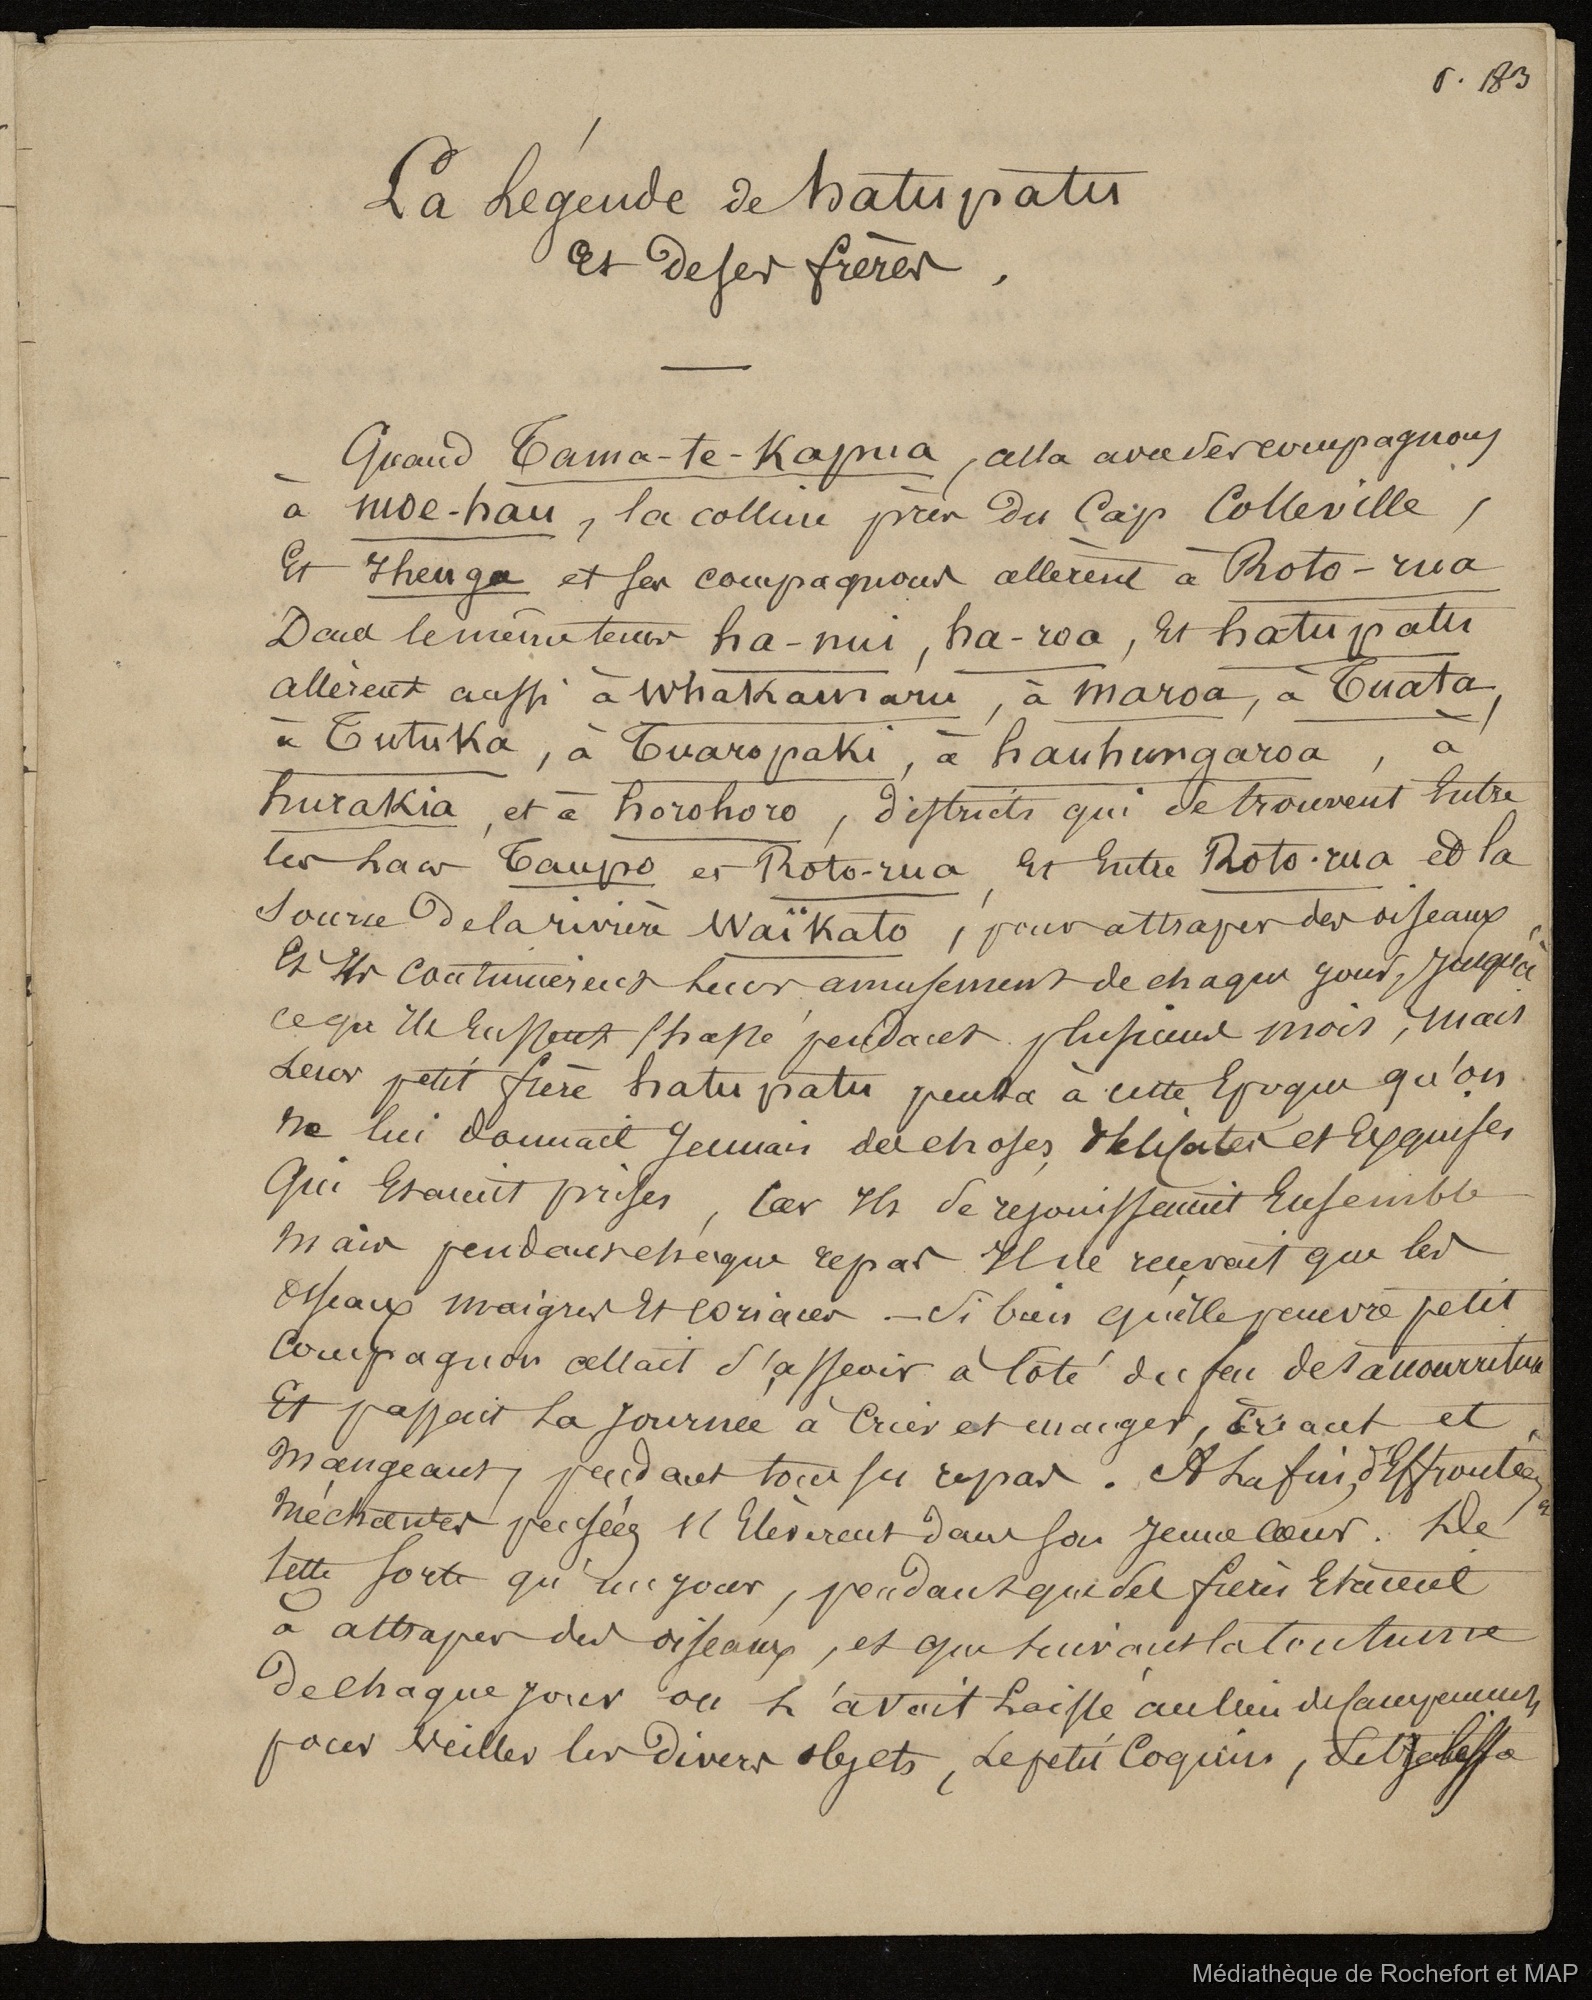 p. 183
La Légende de hatupatu
Et de ses frères.
Quand Tama-te-Kapua, alla avec ses compagnons
à moe-hau, la colline près du Cap Colleville,
Et Ihenga et ses compagnons allèrent à Roto-rua
Dans le même temps ha-nui, ha-roa, Et hatupatu
allèrent aussi à Whakamaru, à maroa, à Tuata,
à Tutuka, à Tuaropaki, à hauhungaroa, à
hurakia, et à horohoro, districts qui se trouvent Entre
les Lacs Taupo et Roto-rua, Et Entre Roto-rua et la
Source de la rivière Waïkato, pour attraper des oiseaux,
Et Ils Continuèrent leur amusement de chaque jour, Jusqu'à
ce qu'Ils Eussent Chassé pendant plusieurs mois, Mais
Leur petit frère hatupatu pensa à cette Epoque qu'on
Ne lui donnait Jamais des choses délicates et Exquises
Qui Etaient prises, Car Ils se rejouissaient Ensemble
Mais pendant chaque repas Il ne recevait que les
oiseaux maigres Et coriaces — Si bien que le pauvre petit
Compagnon allait s'asseoir à Coté du feu de sa nourriture
Et passait La Journée à Crier et manger, Criant et
Mangeant, pendant tous ses repas. A La fin, d'Effrontées et
Méchantes pensées s'Elèverent dans son Jeune Cœur. De
Cette Sorte qu'un jour, pendant que ses frères Etaient
à attraper des oiseaux, et que suivant la Coutume
De Chaque jour on L'avait Laissé au lieu du campement
pour Veiller les Divers objets, Le petit Coquin, se glissa
Médiathèque de Rochefort et MAP